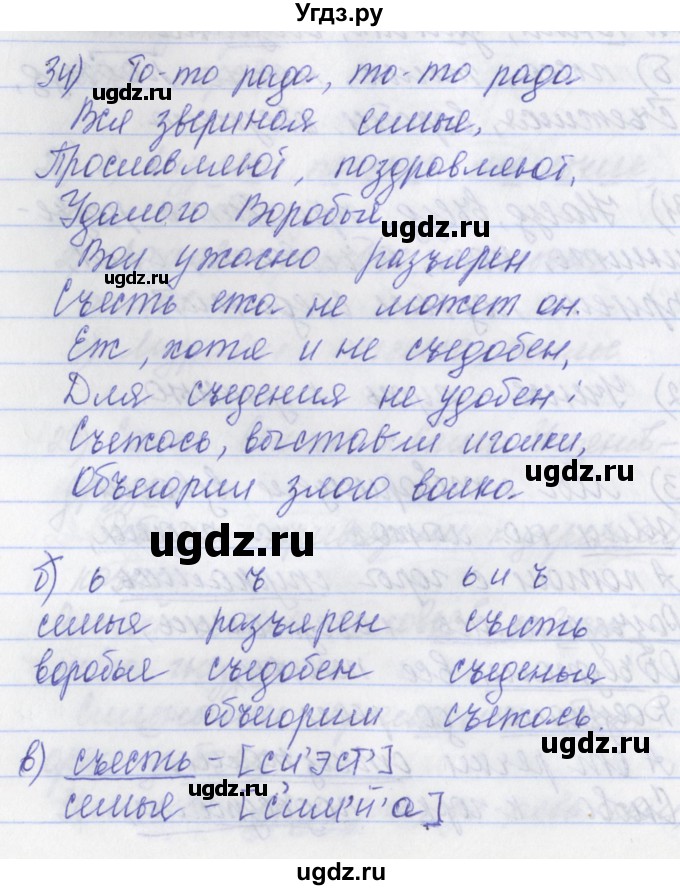 Угдз.ру
34) То-то рада, то-то рада
ugdz.ru
Вся звериная семья,
Прославляют, поздравляют,
Удалого Воробья
ugdz.ru
Волк ужасно разъярен
ugdz.ru
Съесть ежа не может он.
Еж, хотя и не съедобен,
Для съедения не удобен:
Съежась, выставил иголки,
Объегорил злого волка
ugdz.ru
ugdz.ru
б) ь ъ ь и ъ
семья разъярен съесть
воробья съедобен съеденья
объегорил съежась.
ugdz.ru
в) съесть - [сй'эст']
семья - [с'им'й'а]
ugdz.ru
ugdz.ru